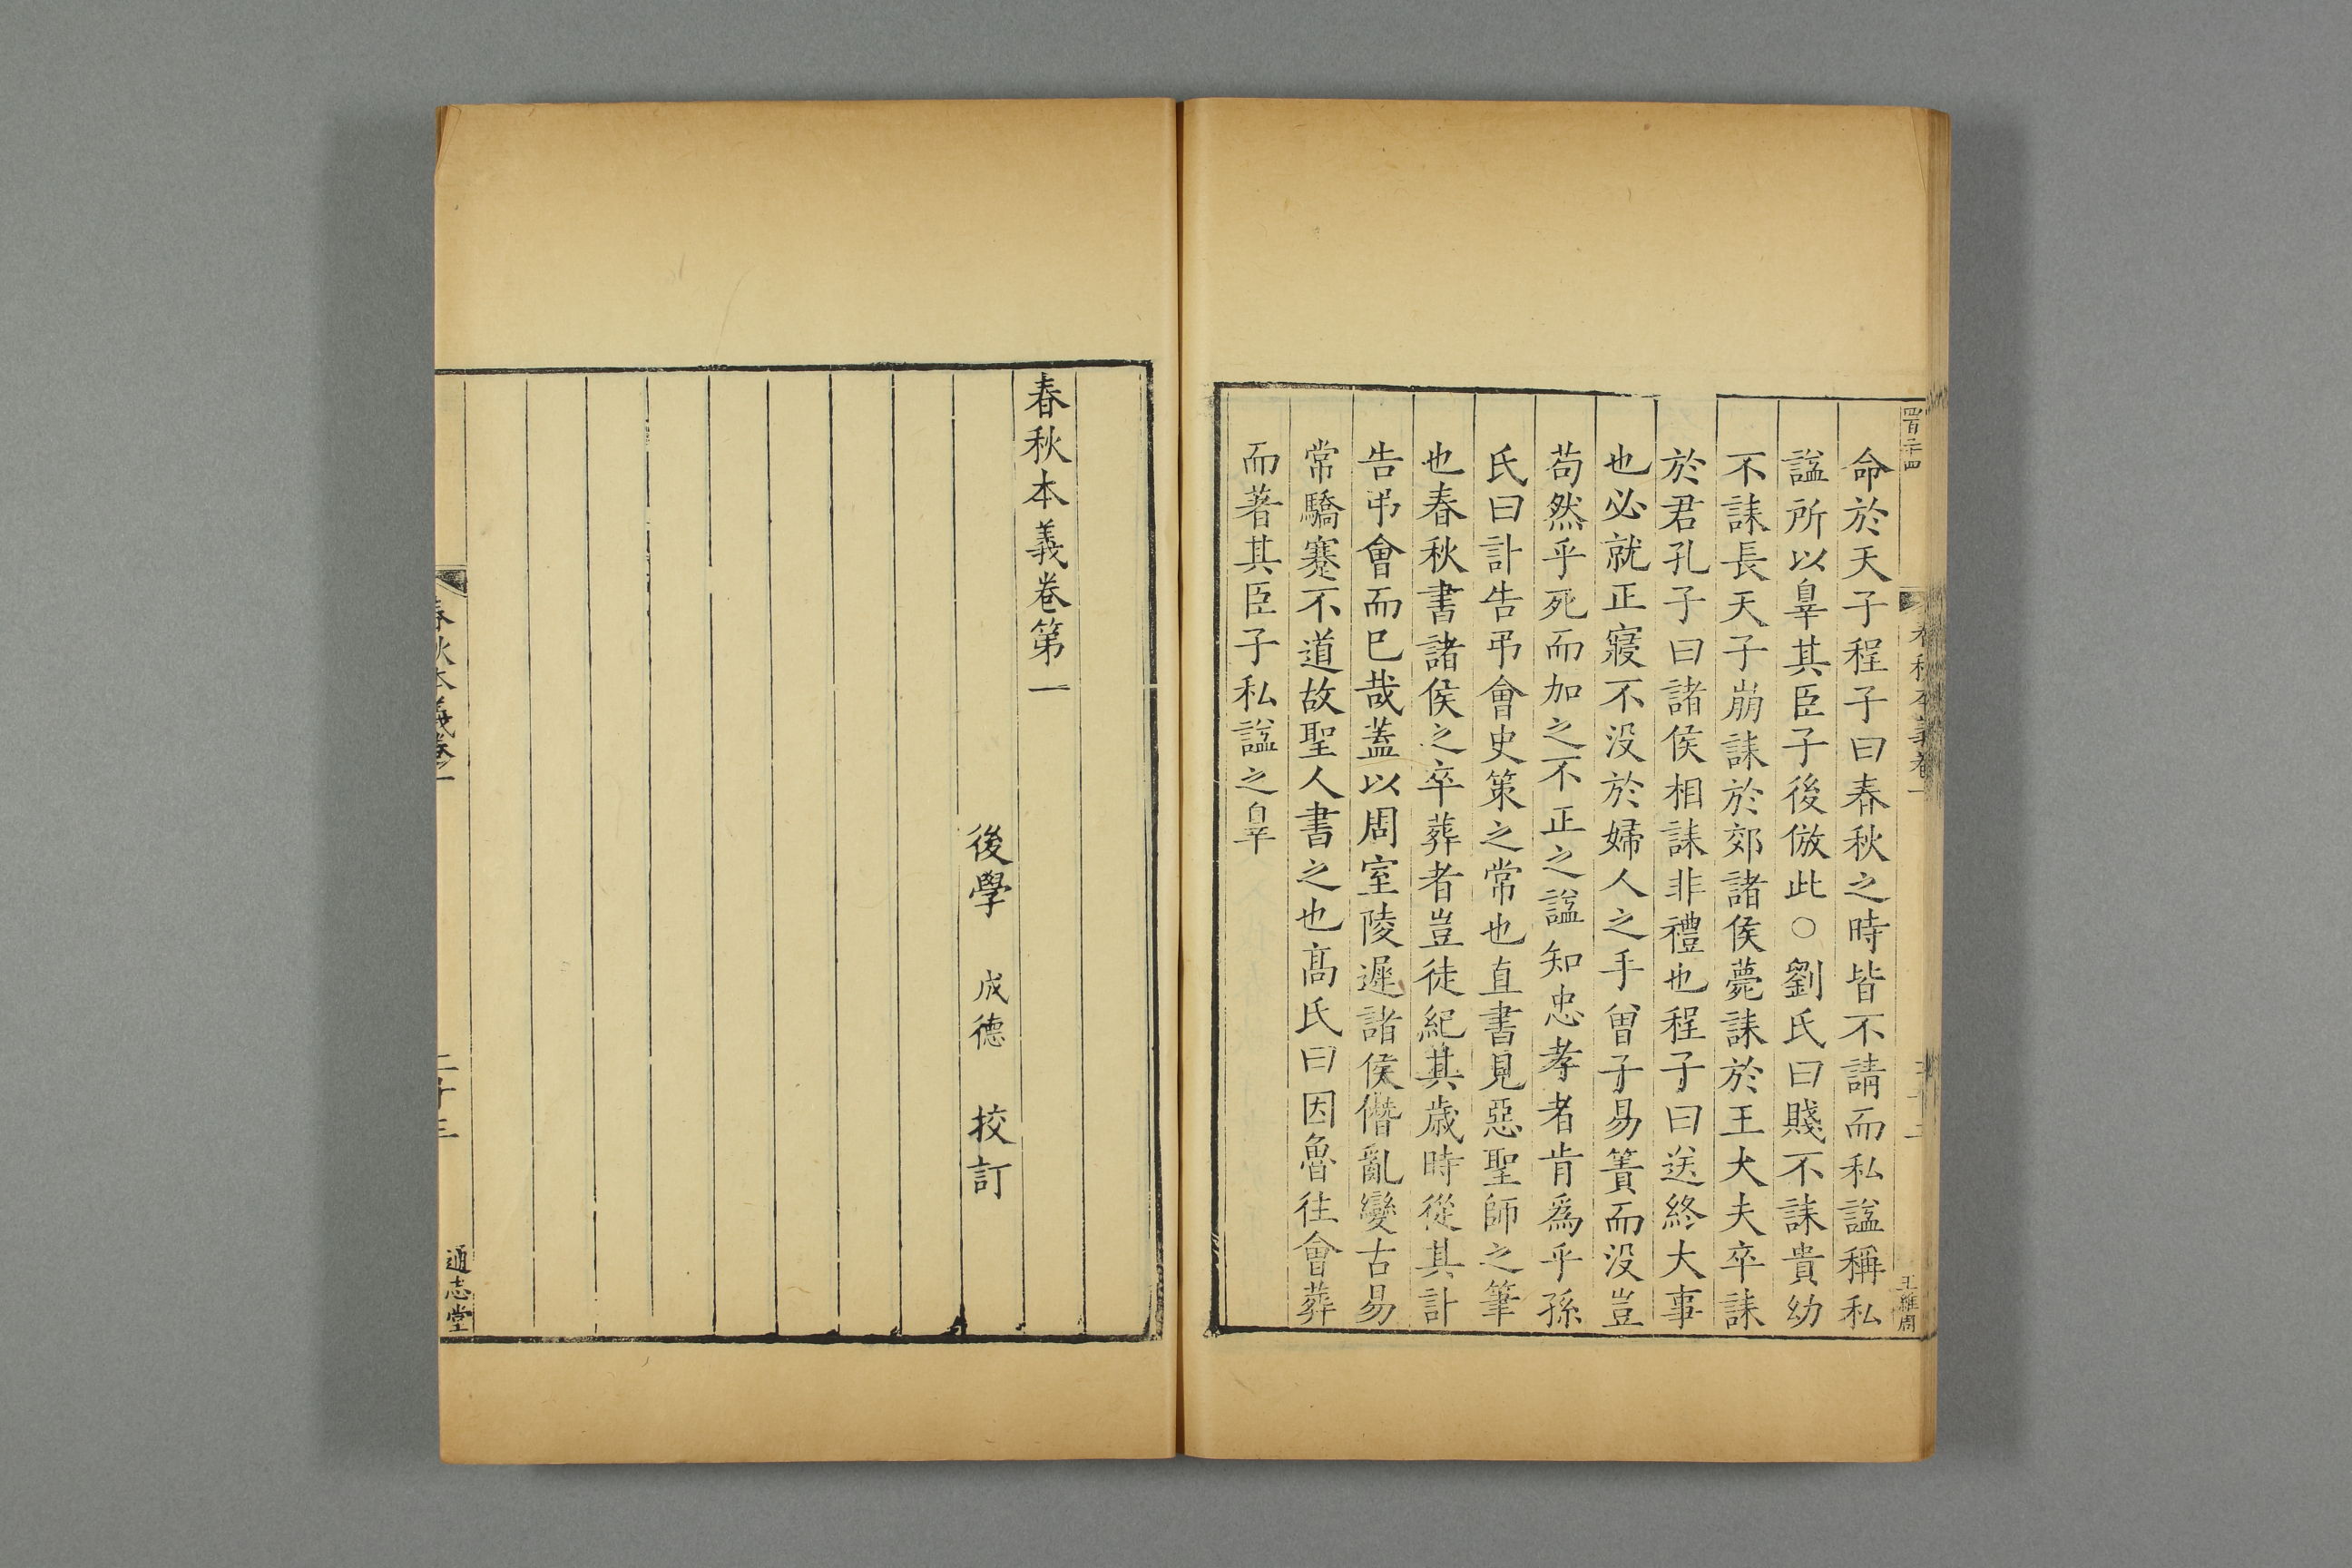 四百二十四
春秋本義卷一
王維周
命於天子程子曰春秋之時皆不請而私諡稱私
諡所以辠其臣子後倣此○劉氏曰賤不誄貴幼
不誄長天子崩誄於郊諸侯薨誄於王大夫卒誄
於君孔子曰諸侯相誄非禮也程子曰送終大事
也必就正寢不没於婦人之手曾子易簀而没豈
苟然乎死而加之不正之諡知忠孝者肯爲乎孫
氏曰計告弔會史策之常也直書見惡聖師之筆
也春秋書諸侯之卒葬者豈徒紀其歲時從其計
告弔會而已哉蓋以周室陵遲諸侯僭亂變古易
常驕蹇不道故聖人書之也高氏曰因魯往會葬
而著其臣子私諡之辠
春秋本義卷第一
後學 成德 挍訂
春秋本義卷一
二十三
通志堂